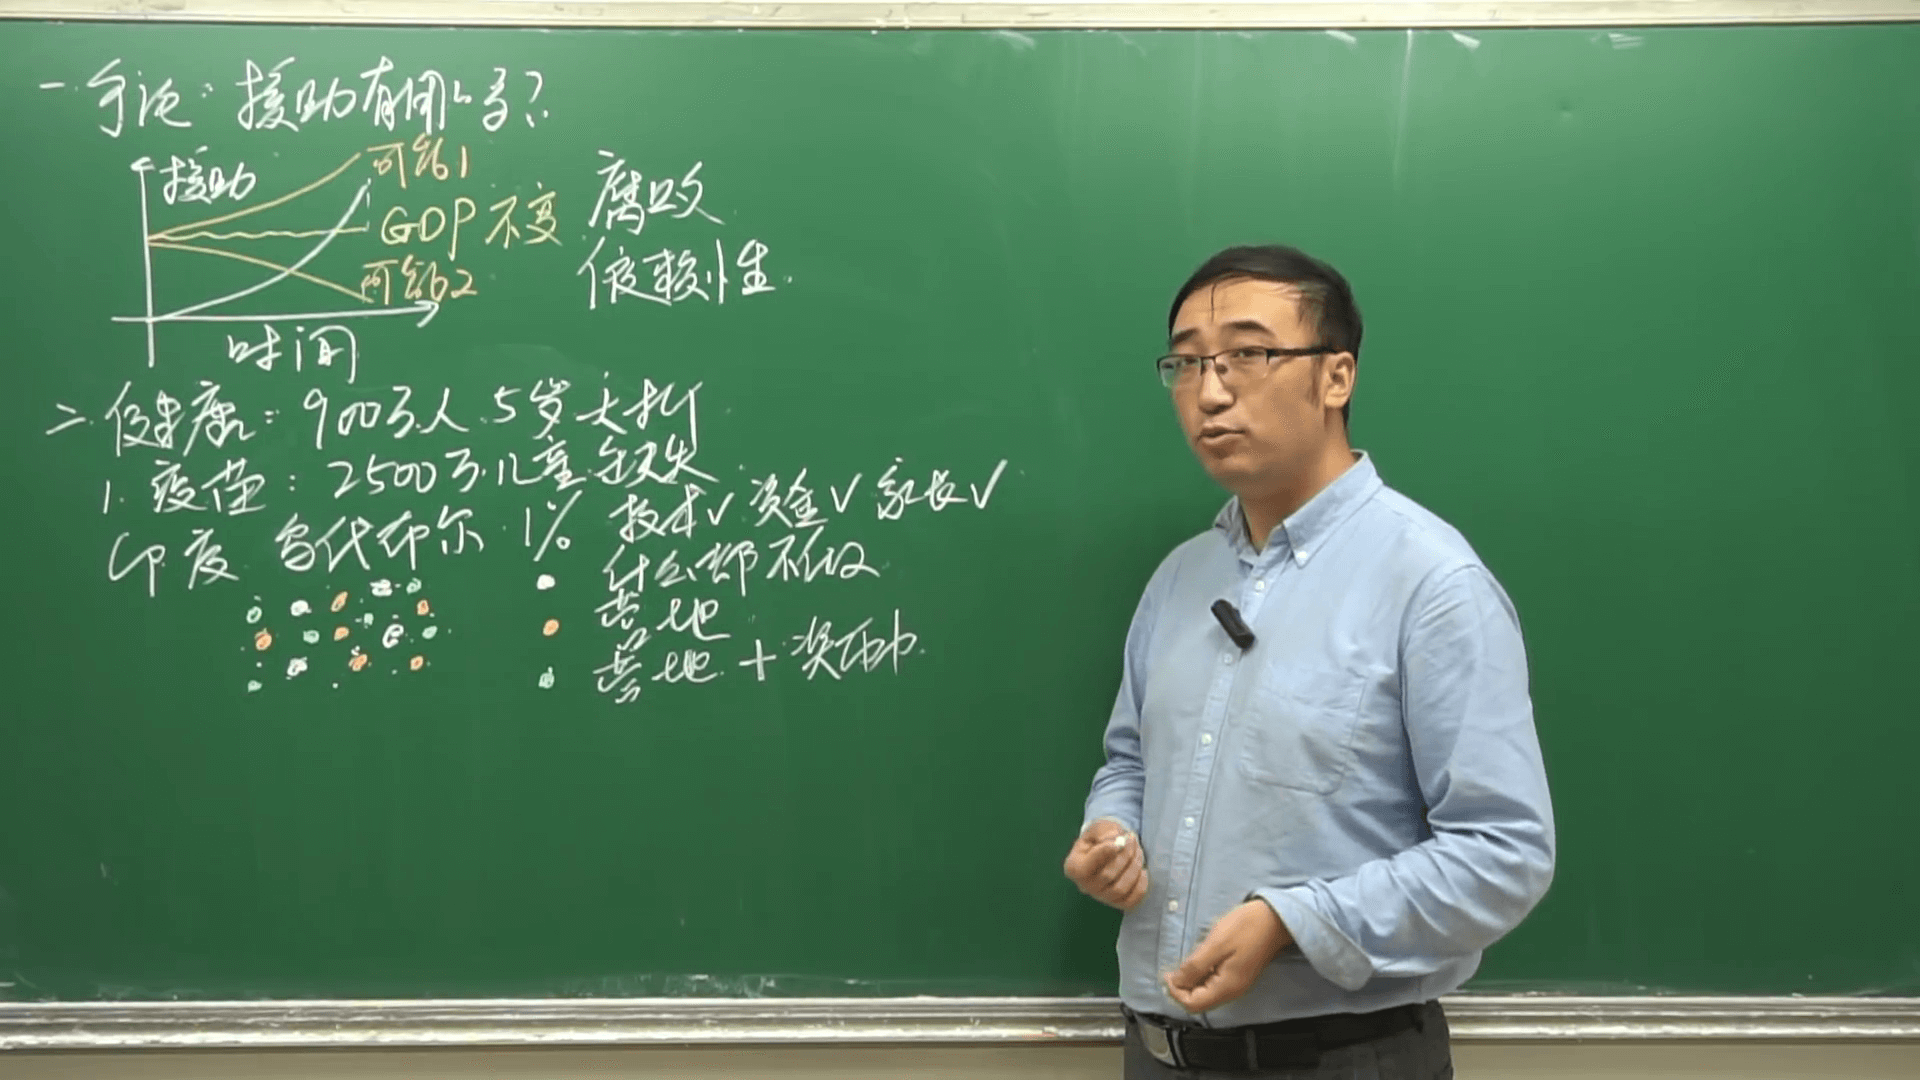 一.争论:援助有用吗?
援助
可能1
GDP不变
可能2
时间
腐败
依赖性.
二.健康:900万人 5岁夭折
1.疫苗:2500万儿童缺失
印度 乌代布尔 1% 技术√ 资金√ 家长√
什么都不做
营地
营地+奖励